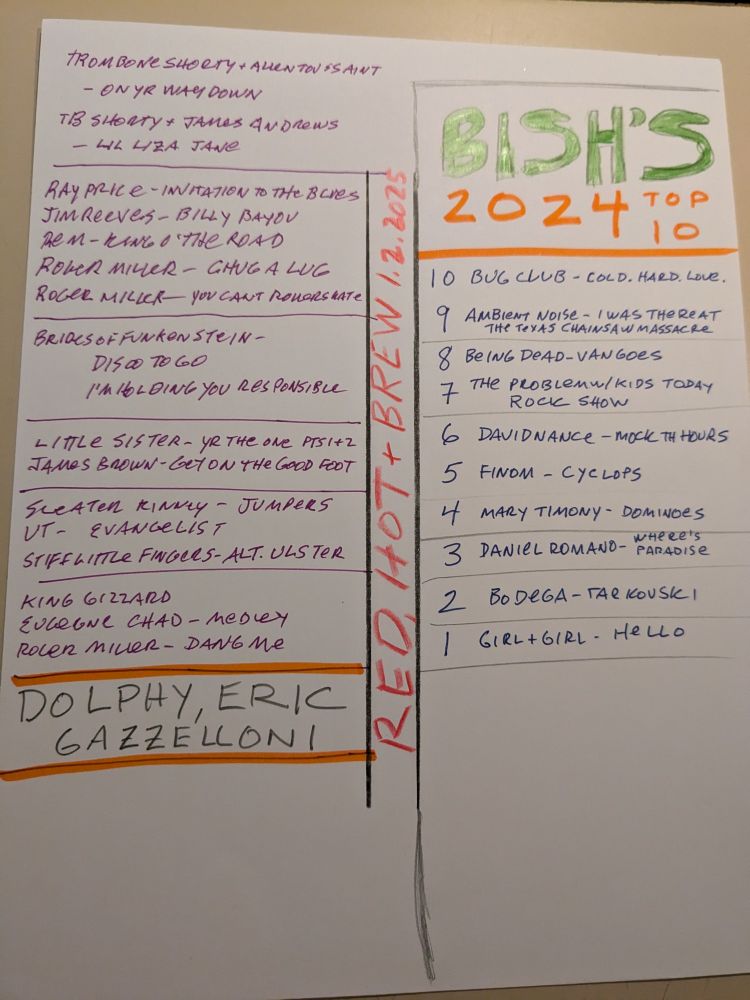 TROMBONE SHORTY + ALLEN TOUSSAINT
- ON YR WAY DOWN
TB SHORTY + JAMES ANDREWS
- LIL LIZA JANE
RAY PRICE - INVITATION TO THE BLUES
JIM REEVES - BILLY BAYOU
REM - KING O' THE ROAD
ROGER MILLER - CHUG A LUG
ROGER MILLER - YOU CANT ROLLERSKATE
BRIDES OF FUNKENSTEIN -
DISCO TO GO
I'M HOLDING YOU RESPONSIBLE
LITTLE SISTER - YR THE ONE PTS 1+2
JAMES BROWN - GET ON THE GOOD FOOT
SLEATER KINNEY - JUMPERS
UT - EVANGELIST
STIFF LITTLE FINGERS - ALT. ULSTER
KING GIZZARD
EUGEGNE CHAD - MEDLEY
ROGER MILLER - DANG ME
DOLPHY, ERIC
GAZZELLONI
RED, HOT + BREW 1.2.2025
BISH'S
2024 TOP
10
10 BUG CLUB - COLD. HARD. LOVE.
9 AMBIENT NOISE - I WAS THERE AT
THE TEXAS CHAINSAW MASSACRE
8 BEING DEAD - VAN GOES
7 THE PROBLEM W/ KIDS TODAY
ROCK SHOW
6 DAVID NANCE - MOCK TH HOURS
5 FINOM - CYCLOPS
4 MARY TIMONY - DOMINOES
3 DANIEL ROMANO - WHERE'S
PARADISE
2 BODEGA - TARKOVSKI
1 GIRL + GIRL - HELLO